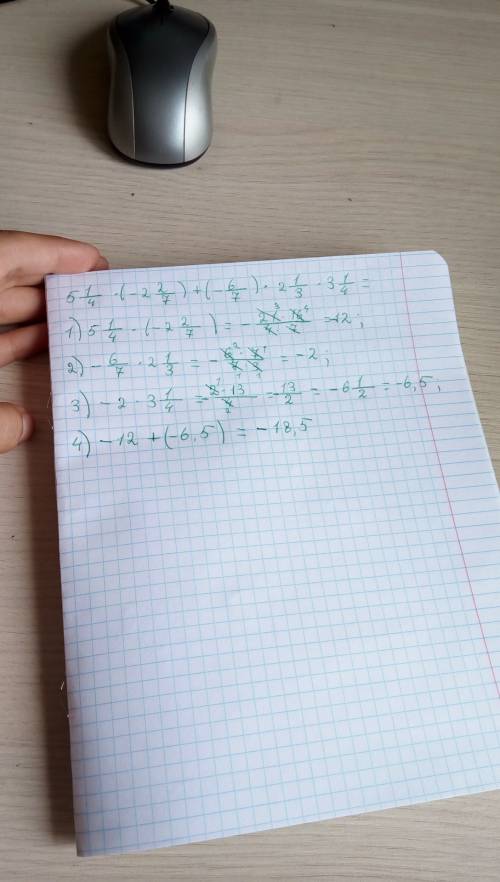 5 1/4 · (-2 2/7) + (-6/7) · 2 1/3 · 3 1/4 =
1) 5 1/4 · (-2 2/7) = - (21³ · 16⁴)/(4 · 7) = -12;
2) - 6/7 · 2 1/3 = - (6² · 7¹)/(7 · 3₁) = -2;
3) -2 · 3 1/4 = - (2¹ · 13)/(4₂) = - 13/2 = -6 1/2 = -6,5;
4) -12 + (-6,5) = -18,5